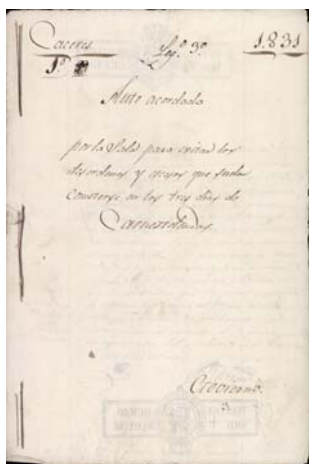 Caceres. Leg.º 3º. 1831
1º
Auto acordado
por la Sala para evitar los
desordenes y excesos que suelen
cometerse en los tres dias de
Carnestolendas.